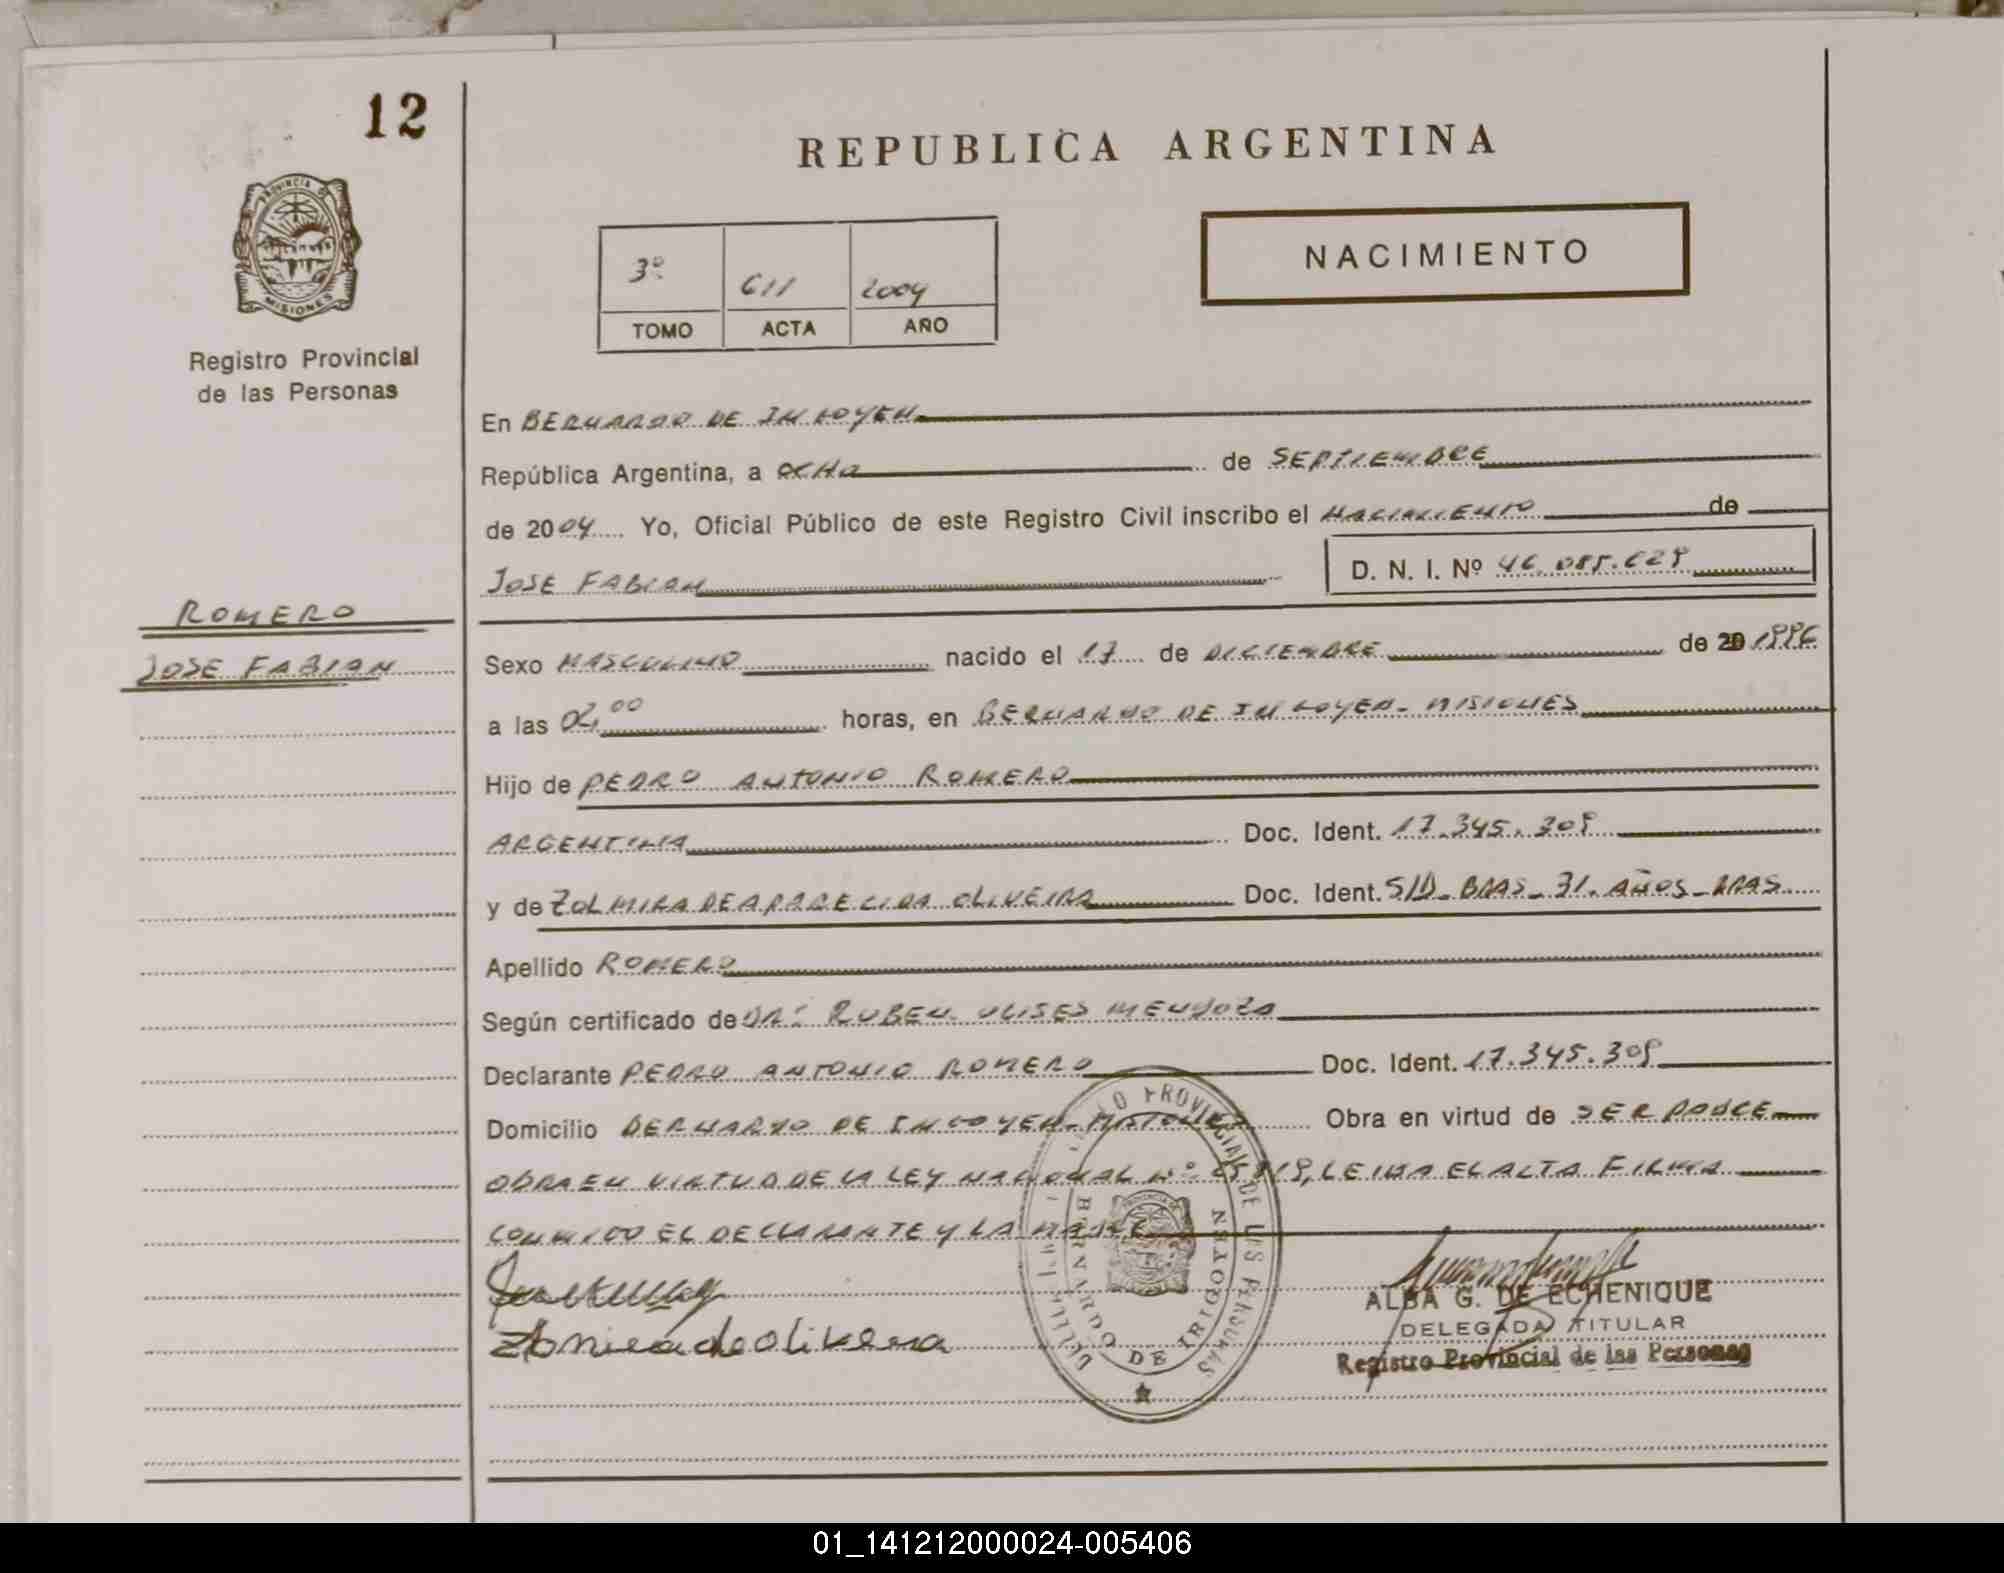 12
REPUBLICA ARGENTINA
PROVINCIA DE
MISIONES
Registro Provincial
de las Personas
3º 611 2004
TOMO ACTA AÑO
NACIMIENTO
En BERNARDO DE IRIGOYEN
República Argentina, a OCHO de SEPTIEMBRE
de 2004 Yo, Oficial Público de este Registro Civil inscribo el NACIMIENTO de
JOSE FABIAN D. N. I. Nº 46.085.629
ROMERO
JOSE FABIAN
Sexo MASCULINO nacido el 17 de DICIEMBRE de 20 1996
a las 02,00 horas, en BERNARDO DE IRIGOYEN - MISIONES
Hijo de PEDRO ANTONIO ROMERO
ARGENTINA Doc. Ident. 17.345.309
y de ZOLMIRA DE APARECIDA OLIVEIRA Doc. Ident. S/D - BRAS - 31 AÑOS - BRAS
Apellido ROMERO
Según certificado de DR: RUBEN ULISES MENDOZA
Declarante PEDRO ANTONIO ROMERO Doc. Ident. 17.345.309
Domicilio BERNARDO DE IRIGOYEN - MISIONES Obra en virtud de SER PADRE
OBRA EN VIRTUD DE LA LEY NACIONAL Nº 25819, LEIDA EL ACTA FIRMA
CONMIGO EL DECLARANTE Y LA MADRE
PROVINCIAL DE LAS PERSONAS
BERNARDO DE IRIGOYEN
ALBA G. DE ECHENIQUE
DELEGADA TITULAR
Registro Provincial de las Personas
01_141212000024-005406